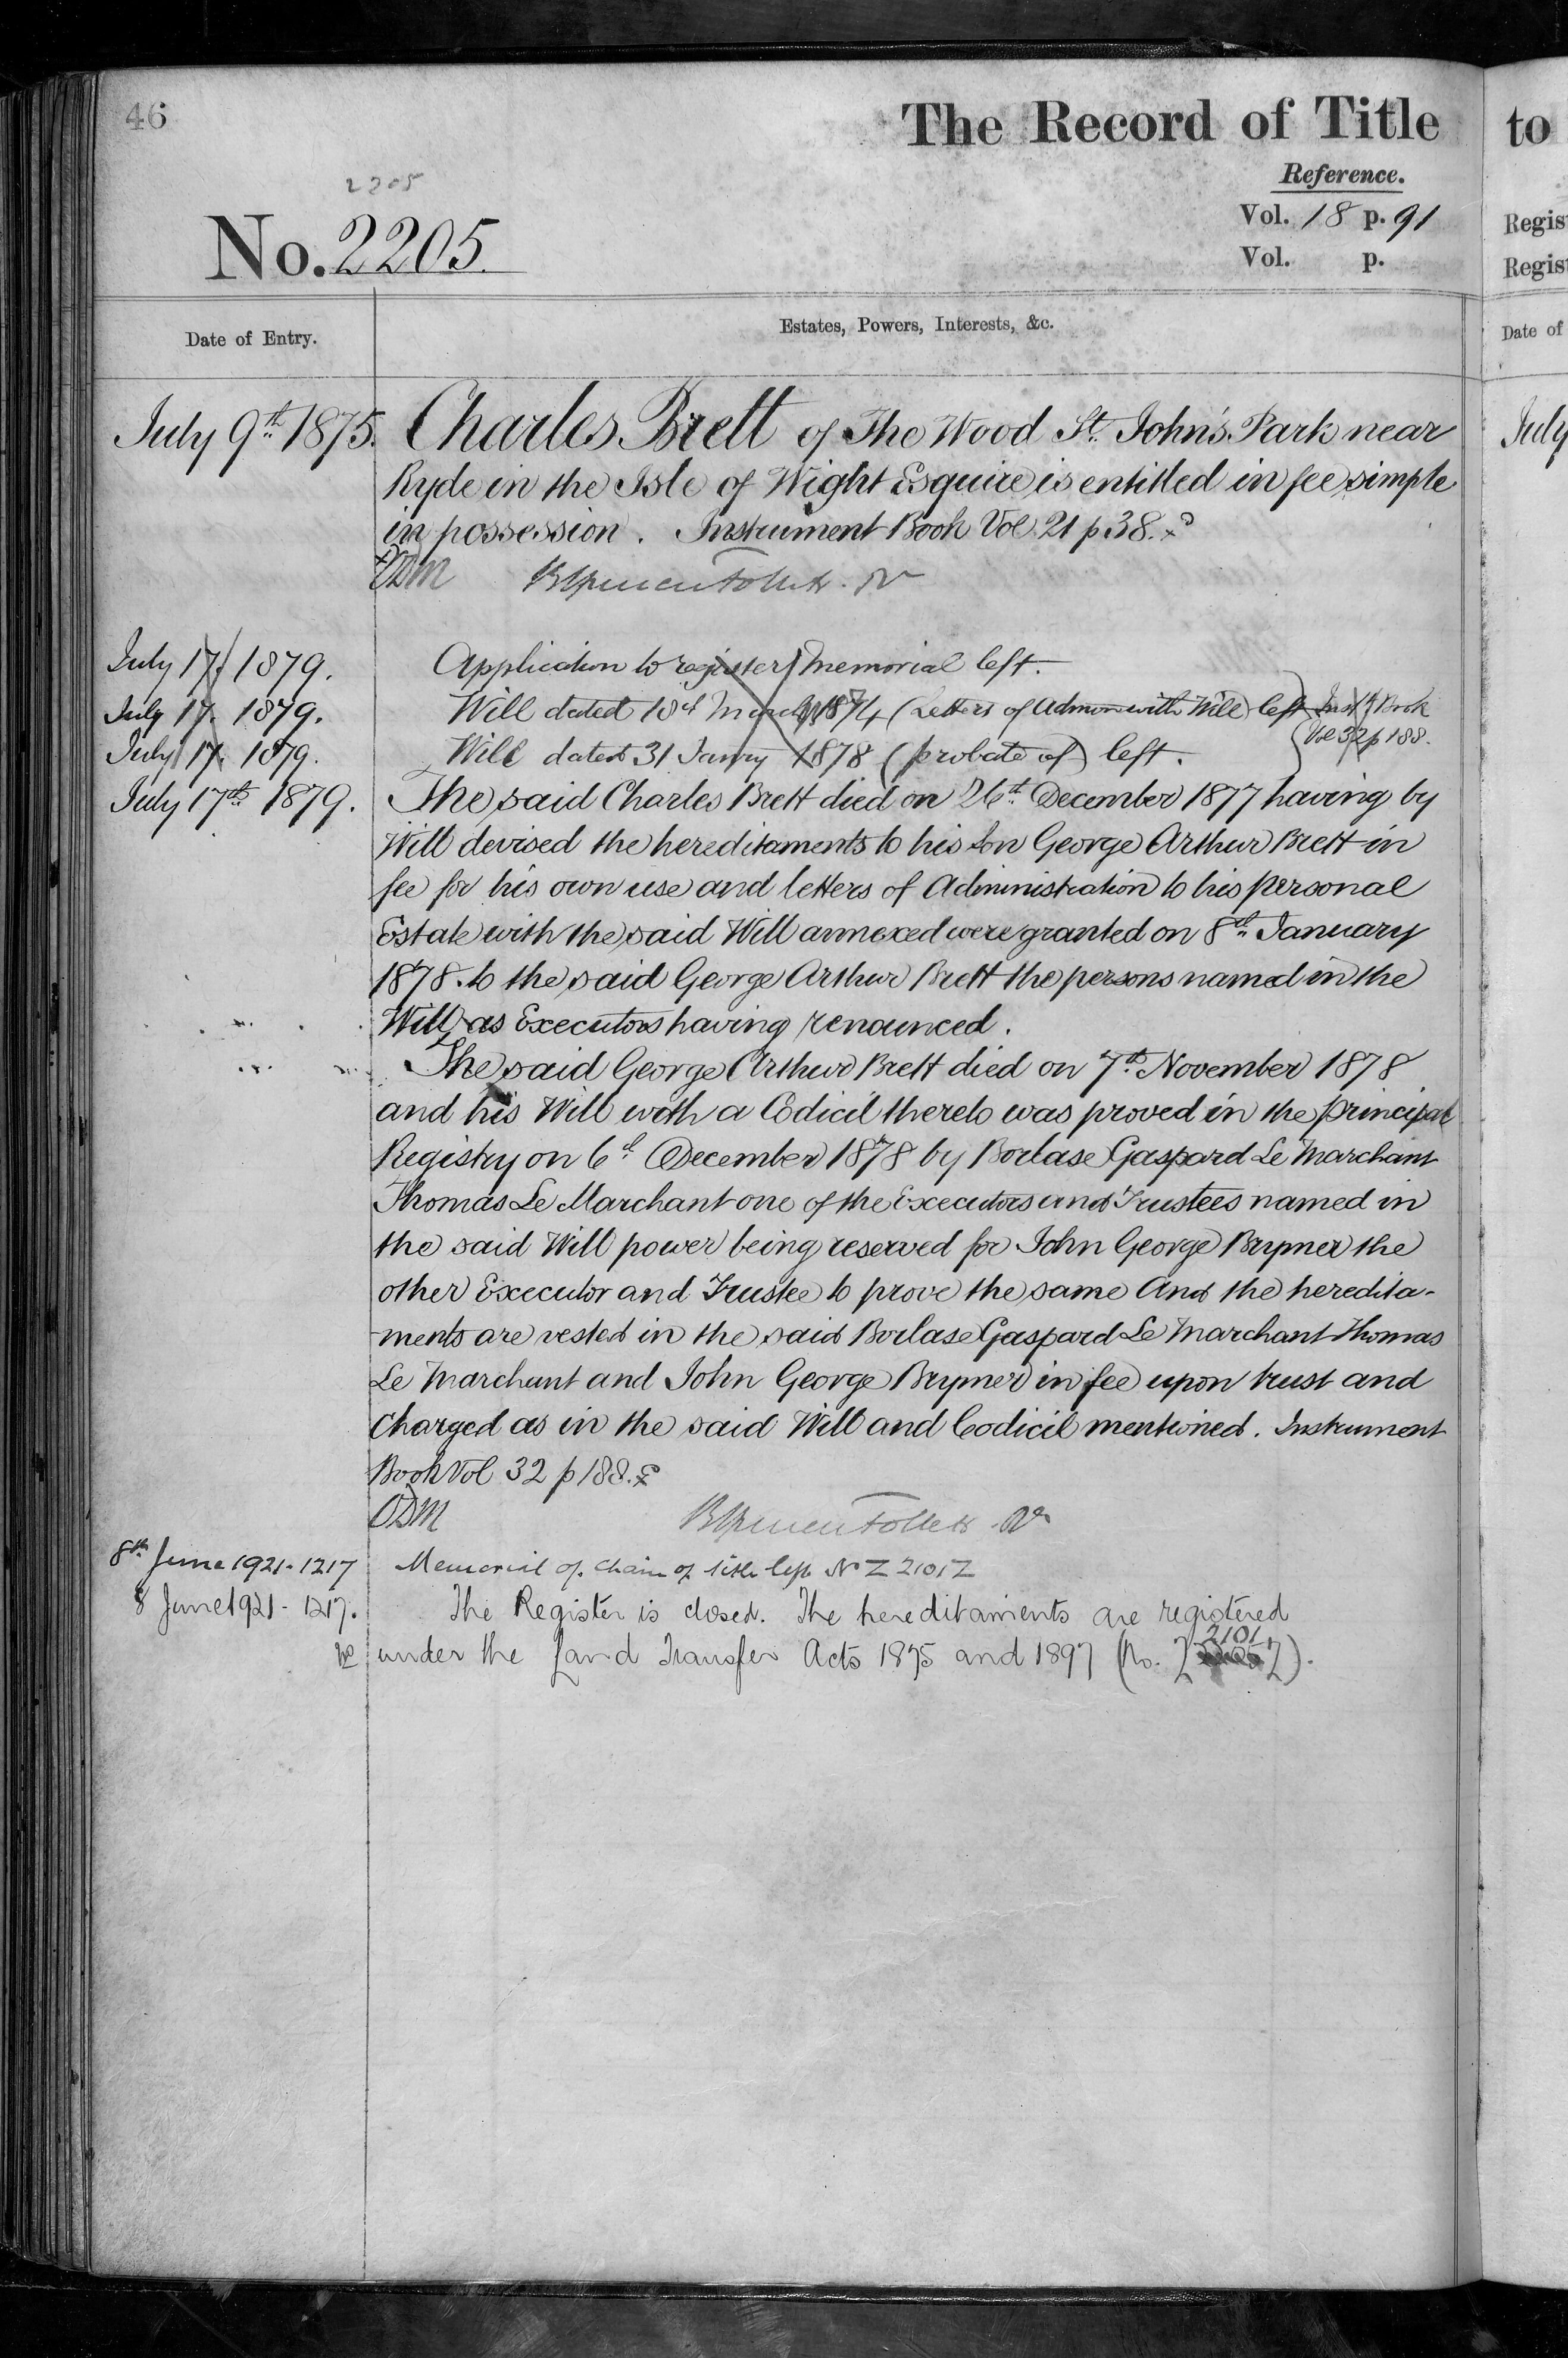 46
The Record of Title
to
Reference.
2205
No. 2205.
Vol. 18 p. 91
Vol. p.
Regis
Regis
Date of Entry.
Estates, Powers, Interests, &c.
Date of
July 9th 1875. Charles Brett of The Wood St. John's Park near
July
Ryde in the Isle of Wight Esquire is entitled in fee simple
in possession. Instrument Book Vol. 21 p. 38.
July 17. 1879. Application to register Memorial left.
July 17. 1879. Will dated 18th March 1874 (Letters of Admon with Will) left Inst Book
Vol 32 p 188.
July 17. 1879. Will dated 31 Janry 1878 (probate of) left.
July 17th 1879. The said Charles Brett died on 26th December 1877 having by
Will devised the hereditaments to his Son George Arthur Brett in
fee for his own use and letters of Administration to his personal
Estate with the said Will annexed were granted on 8th January
1878. to the said George Arthur Brett the persons named in the
Will as Executors having renounced.
The said George Arthur Brett died on 7th November 1878
and his Will with a Codicil thereto was proved in the principal
Registry on 6th December 1878 by Borlase Gaspard Le Marchant
Thomas Le Marchant one of the Executors and Trustees named in
the said Will power being reserved for John George Brymer the
other Executor and Trustee to prove the same And the heredita-
ments are vested in the said Borlase Gaspard Le Marchant Thomas
Le Marchant and John George Brymer in fee upon trust and
Charged as in the said Will and Codicil mentioned. Instrument
Book Vol 32 p 188.
8th June 1921. 1217 Memorial of chain of title left No Z 2101 Z
8 June 1921 - 1217. The Register is closed. The hereditaments are registered
under the Land Transfer Acts 1875 and 1897 (No. Z 2101 Z).